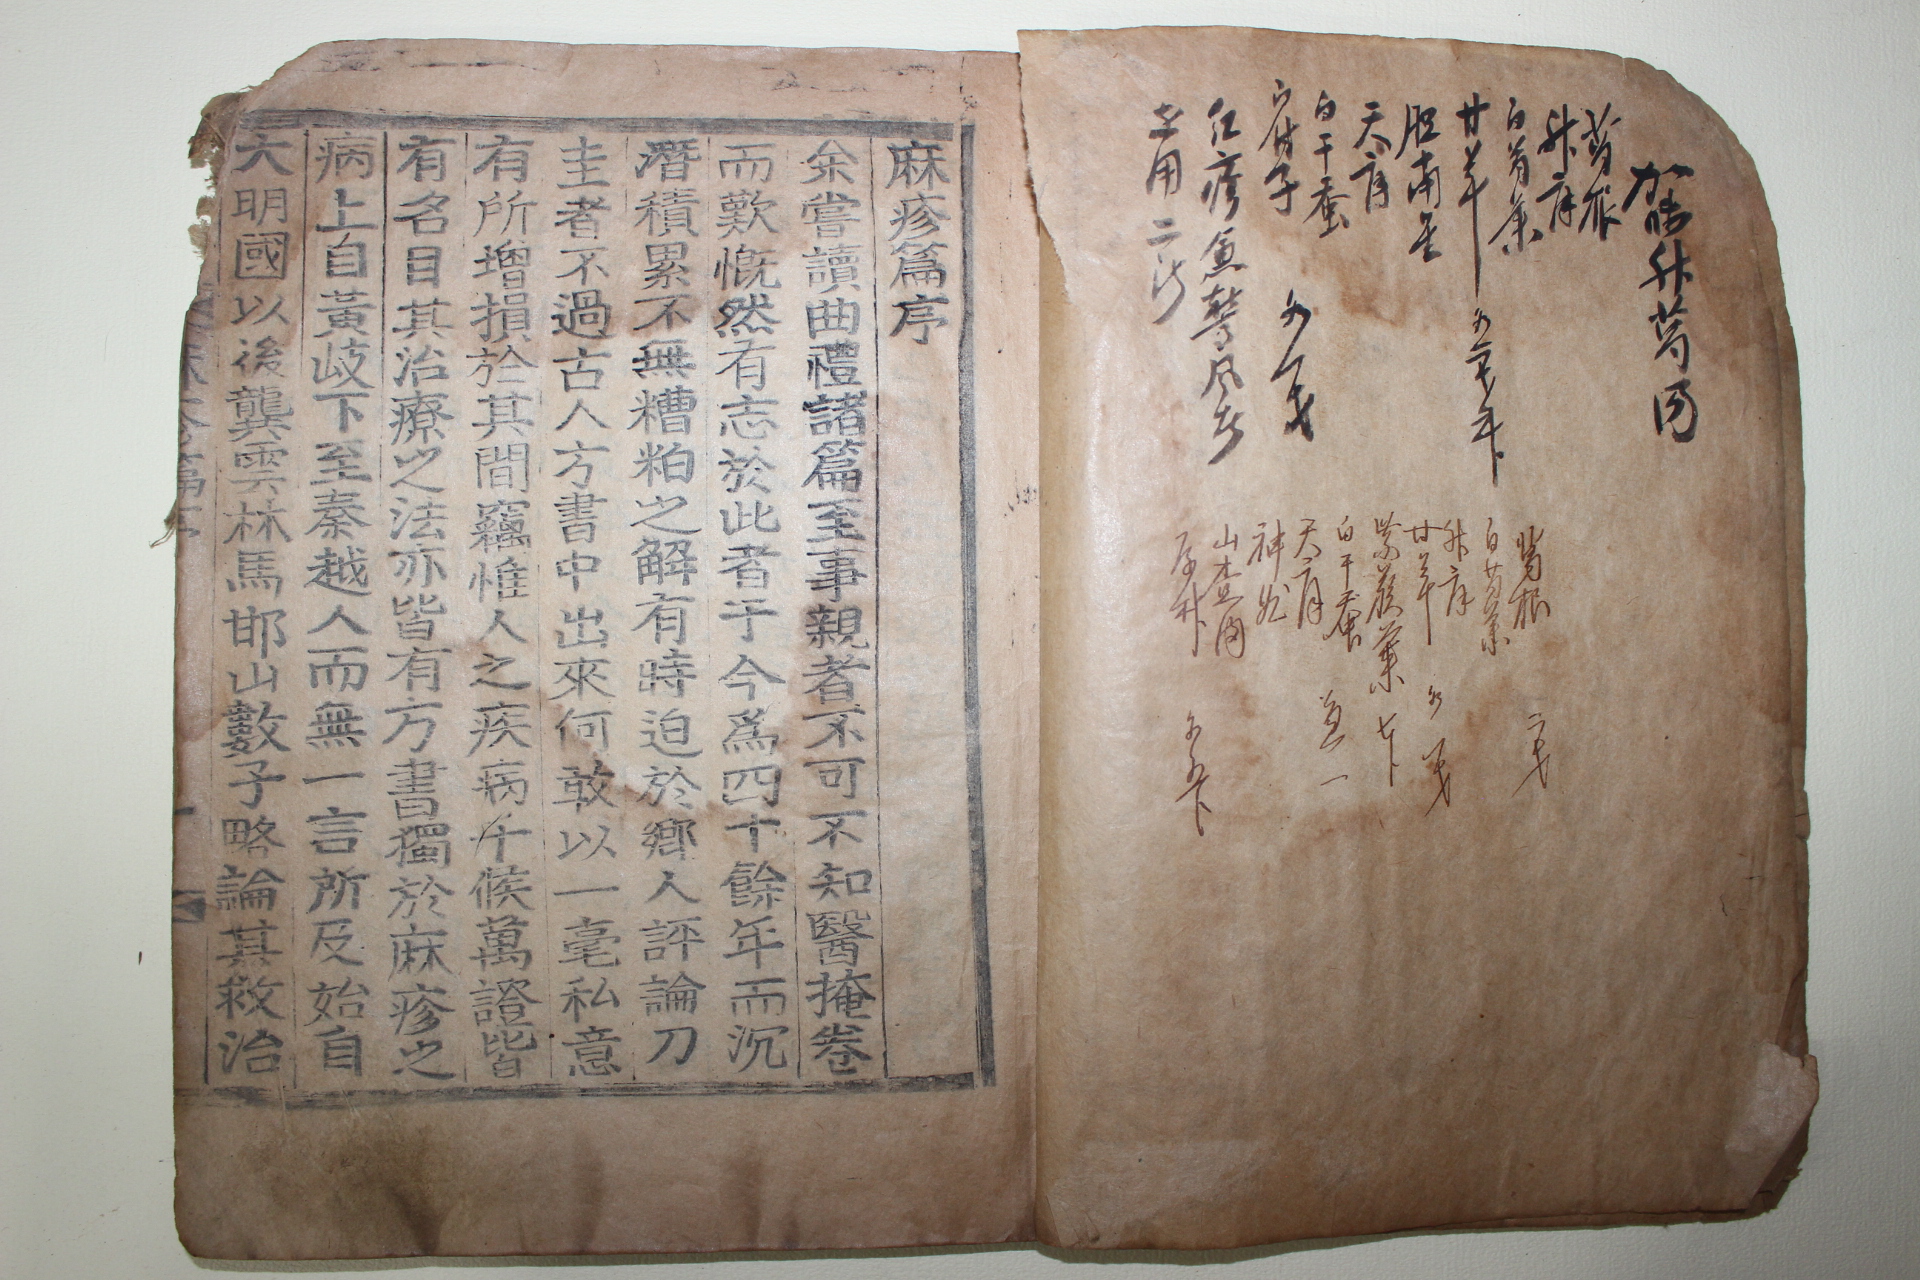 加味升葛湯
葛根
升麻
白芍藥
甘草
胆南星
天麻
白干蚕
紅疹急驚風
葛根
白芍藥
升麻
甘草
紫蘇葉
白干蚕
天麻
神
山査肉
厚朴
麻疹篇序
余嘗讀曲禮諸篇至事親者不可不知醫掩卷
而歎慨然有志於此者于今爲四十餘年而沉
潛積累不無糟粕之解有時迫於鄉人評論刀
圭者不過古人方書中出來何敢以一毫私意
有所增損於其間竊惟人之疾病千候萬證皆
有名目其治療之法亦皆有方書獨於麻疹之
病上自黃岐下至秦越人而無一言所及始自
大明國以後龔雲林馬邯山數子略論其救治